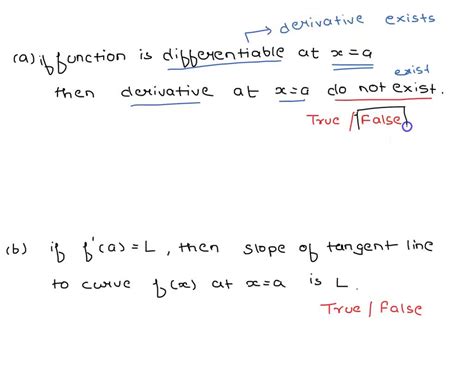 derivative exists
(a) if function is differentiable at x=a
exist
then derivative at x=a do not exist.
True / False
(b) if f'(a)=L, then slope of tangent line
to curve f(x) at x=a is L.
True / False